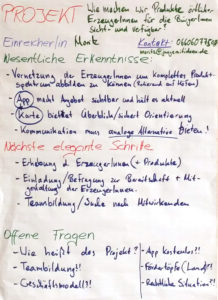 PROJEKT Wie machen wir Produkte örtlicher
ErzeugerInnen für die BürgerInnen
sicht- und verfügbar?
EinreicherIn Moritz
Kontakt:
Wesentliche Erkenntnisse:
- Vernetzung der ErzeugerInnen um komplettes Produkt-
spektrum abbilden zu können
- App macht Angebot sichtbar und hält es aktuell
- Karte bietet Überblick/sichert Orientierung
- Kommunikation muss analoge Alternative bieten!
Nächste elegante Schritte
- Erhebung d. ErzeugerInnen (+ Produkte)
- Einladung/Befragung zu Bereitschaft + Mit-
gestaltung der ErzeugerInnen
- Teambildung/Suche nach Mitwirkenden
Offene Fragen
- Wie heißt das Projekt?
- Teambildung?!
- Geschäftsmodell?!
- App kostenlos?!
- Fördertöpfe (Land)?!
- Rechtliche Situation?!